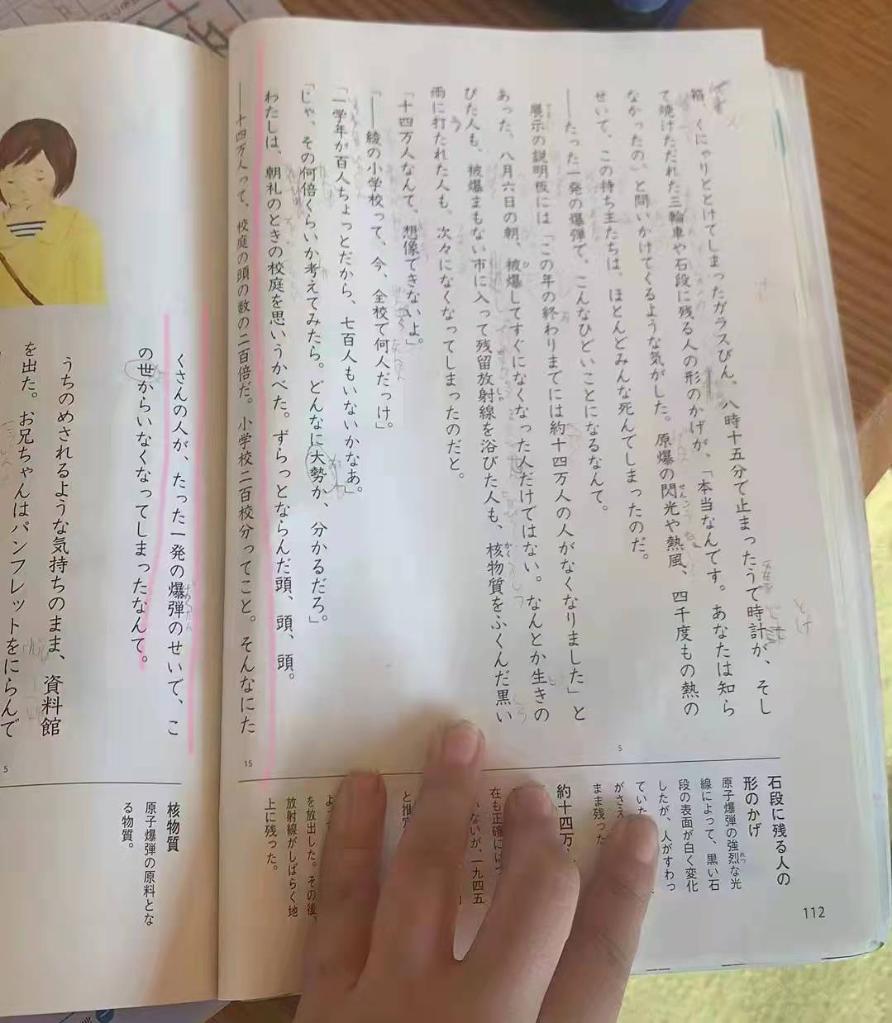 箱、くにゃりととけてしまったガラスびん、八時十五分で止まったうで時計が、そし
て焼けただれた三輪車や石段に残る人の形のかげが、「本当なんです。あなたは知ら
なかったの。」と問いかけてくるような気がした。原爆の閃光や熱風、四千度もの熱の
せいで、この持ち主たちは、ほとんどみんな死んでしまったのだ。
――たった一発の爆弾で、こんなひどいことになるなんて。
展示の説明板には「この年の終わりまでには約十四万人の人がなくなりました」と
あった。八月六日の朝、被爆してすぐになくなった人だけではない。なんとか生きの
びた人も、被爆まもない市に入って残留放射線を浴びた人も、核物質をふくんだ黒い
雨に打たれた人も、次々になくなってしまったのだと。
「十四万人なんて、想像できないよ。」
「――綾の小学校って、今、全校で何人だっけ。」
「一学年が百人ちょっとだから、七百人もいないかなあ。」
「じゃ、その何倍くらいか考えてみたら。どんなに大勢か、分かるだろ。」
わたしは、朝礼のときの校庭を思いうかべた。ずらっとならんだ頭、頭、頭。
――十四万人って、校庭の頭の数の二百倍だ。小学校二百校分ってこと。そんなにた
5
15
石段に残る人の
形のかげ
原子爆弾の強烈な光
線によって、黒い石
段の表面が白く変化
したが、人がすわっ
ていた
がさえ
まま残った
約十四万
在も正確には
いないが、一九四五
と推
を放出した。その後、
放射線がしばらく地
上に残った。
112
くさんの人が、たった一発の爆弾のせいで、こ
の世からいなくなってしまったなんて。
うちのめされるような気持ちのまま、資料館
を出た。お兄ちゃんはパンフレットをにらんで
5
核物質
原子爆弾の原料とな
る物質。